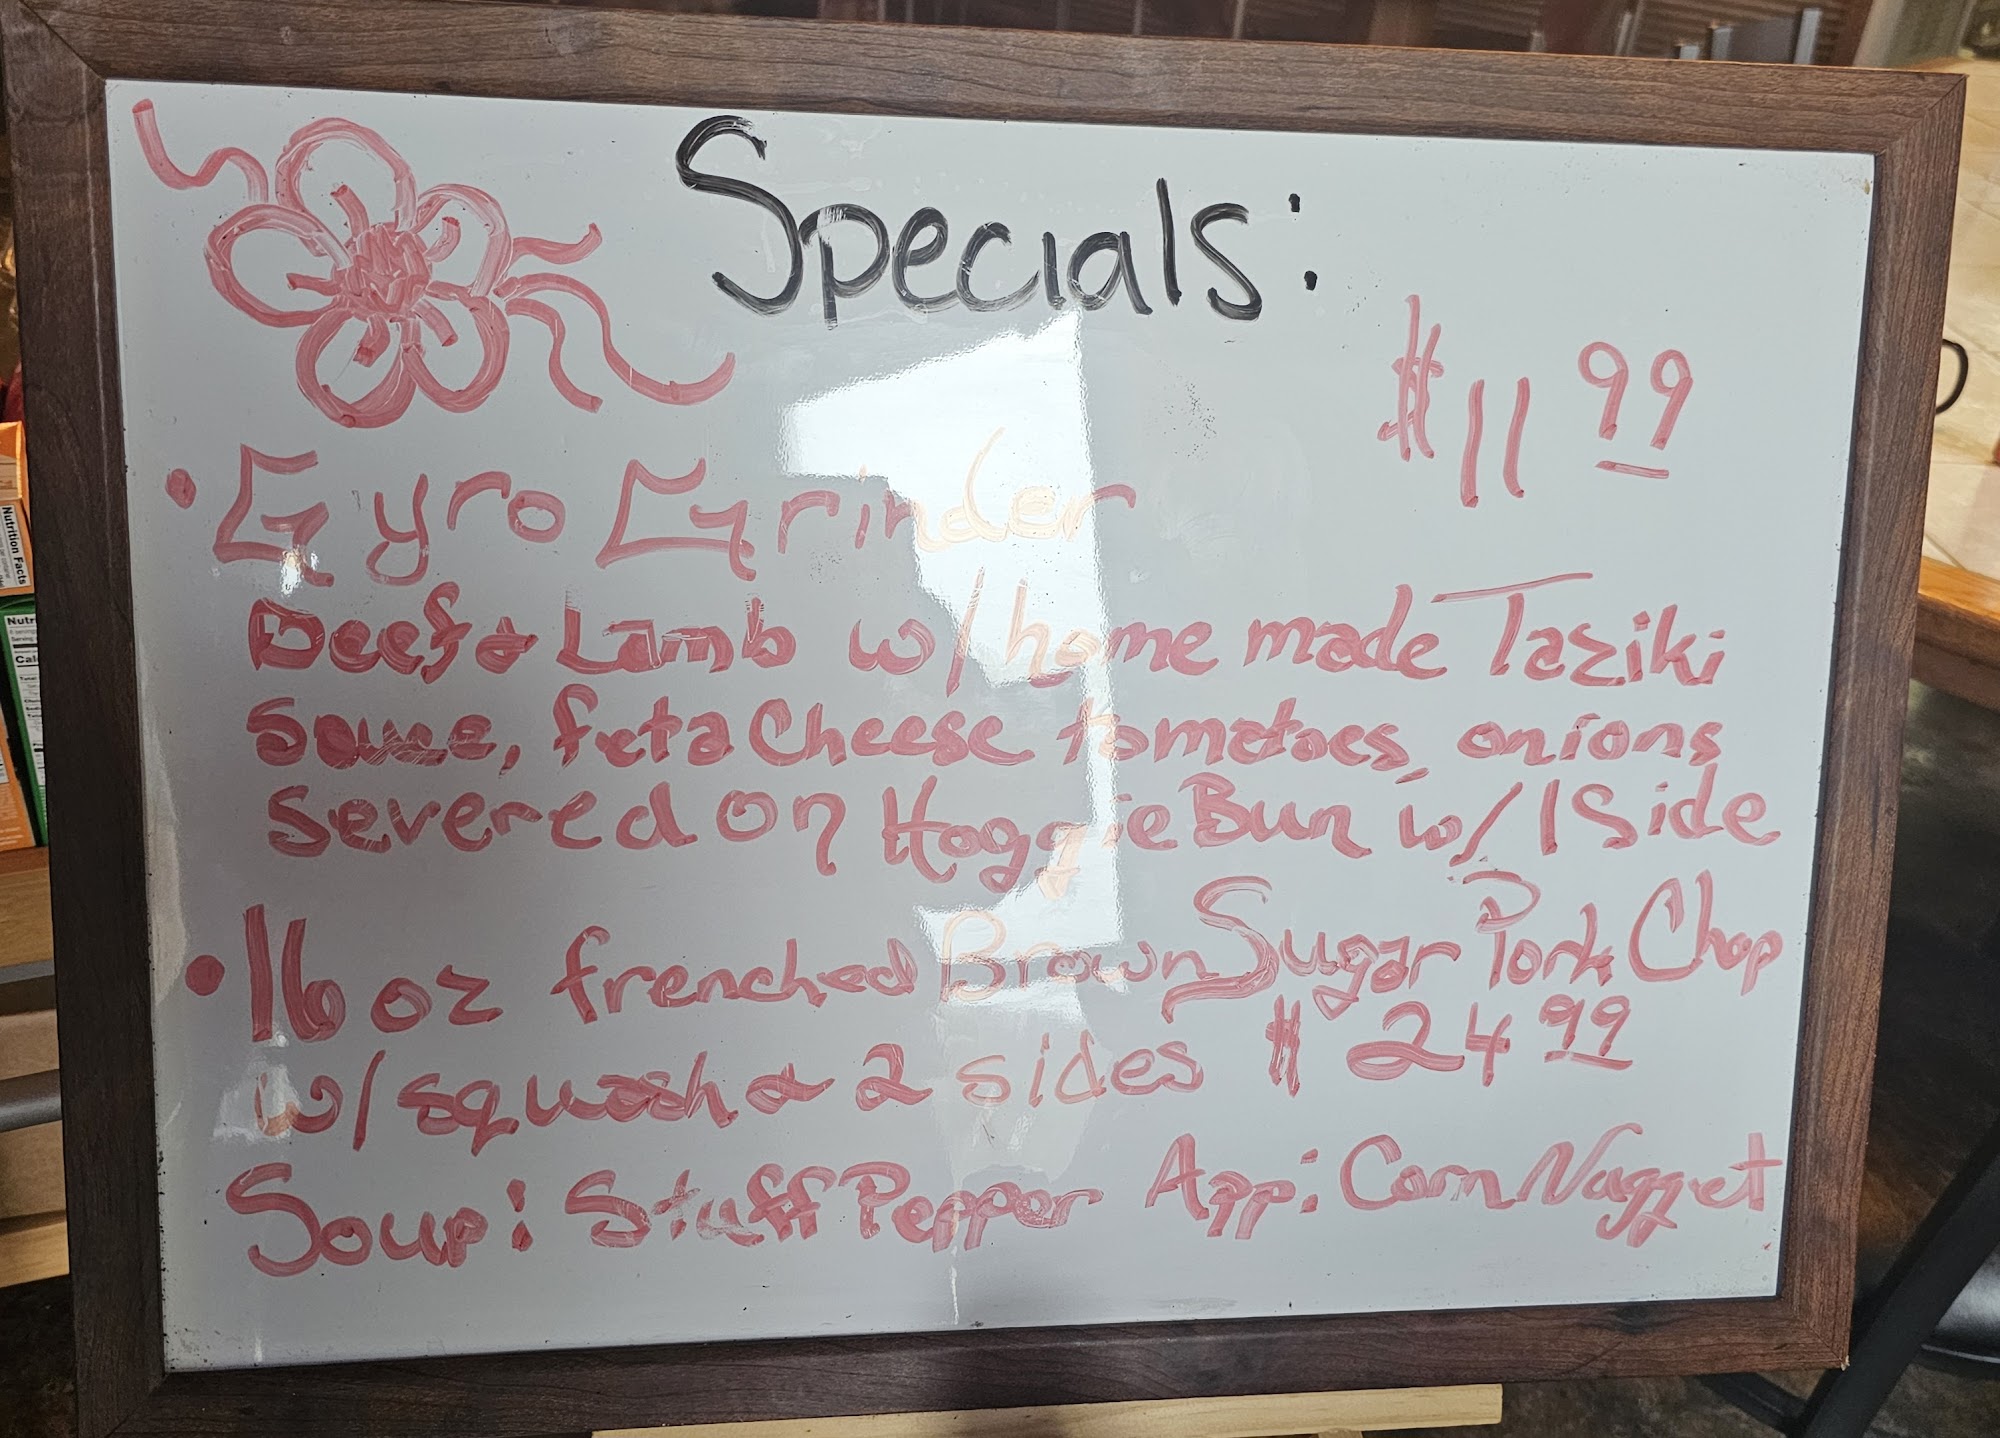 Specials:
$11 99
• Gyro Grinder
Beef & Lamb w/ home made Taziki
Sauce, feta Cheese tomatoes, onions
Severed on Hoggie Bun w/ 1 Side
• 16 oz frenched Brown Sugar Pork Chop
w/ squash & 2 sides $24 99
Soup: Stuff Pepper App: Corn Nugget
Nutrition Facts
Nutri
Cal